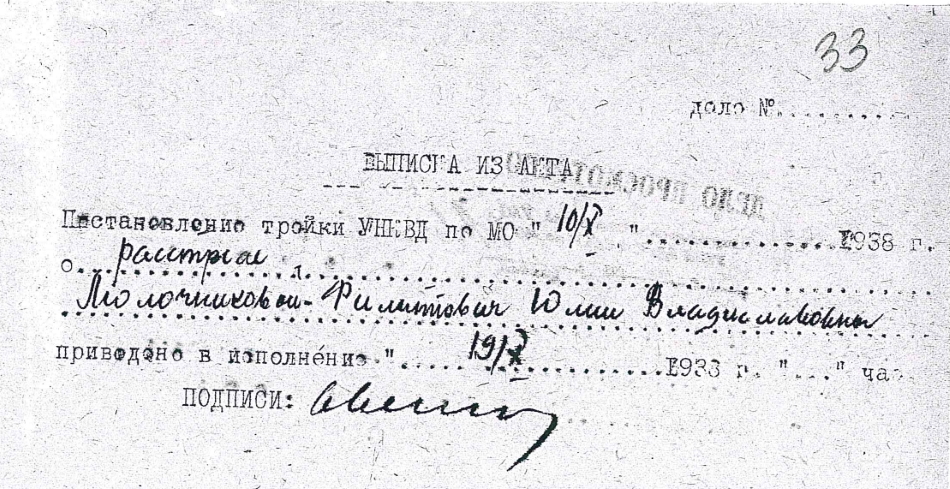 33
дело №..........
ВЫПИСКА ИЗ АКТА
ДЕЛО ПРОСМОТРЕНО
Постановление тройки УНКВД по МО "10/X."..............1938 г.
о...расстреле
Молочниковой-Филипович Юлии Владиславовны
приведено в исполнение "...19/X...............1938 г. "..." час.
ПОДПИСИ: